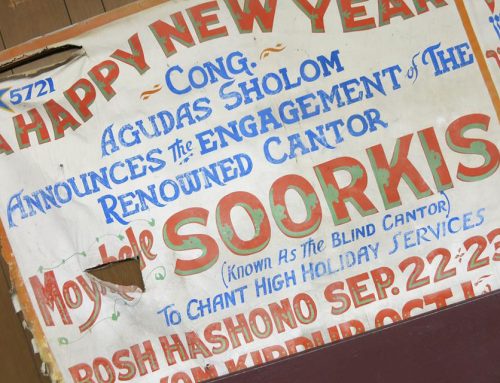 5721
A HAPPY NEW YEAR
CONG.
AGUDAS SHOLOM
ANNOUNCES The ENGAGEMENT of THE
RENOWNED CANTOR
SOORKIS
(KNOWN AS THE BLIND CANTOR)
TO CHANT HIGH HOLIDAY SERVICES
ROSH HASHONO SEP. 22-23
YOM KIPPUR OCT. 1